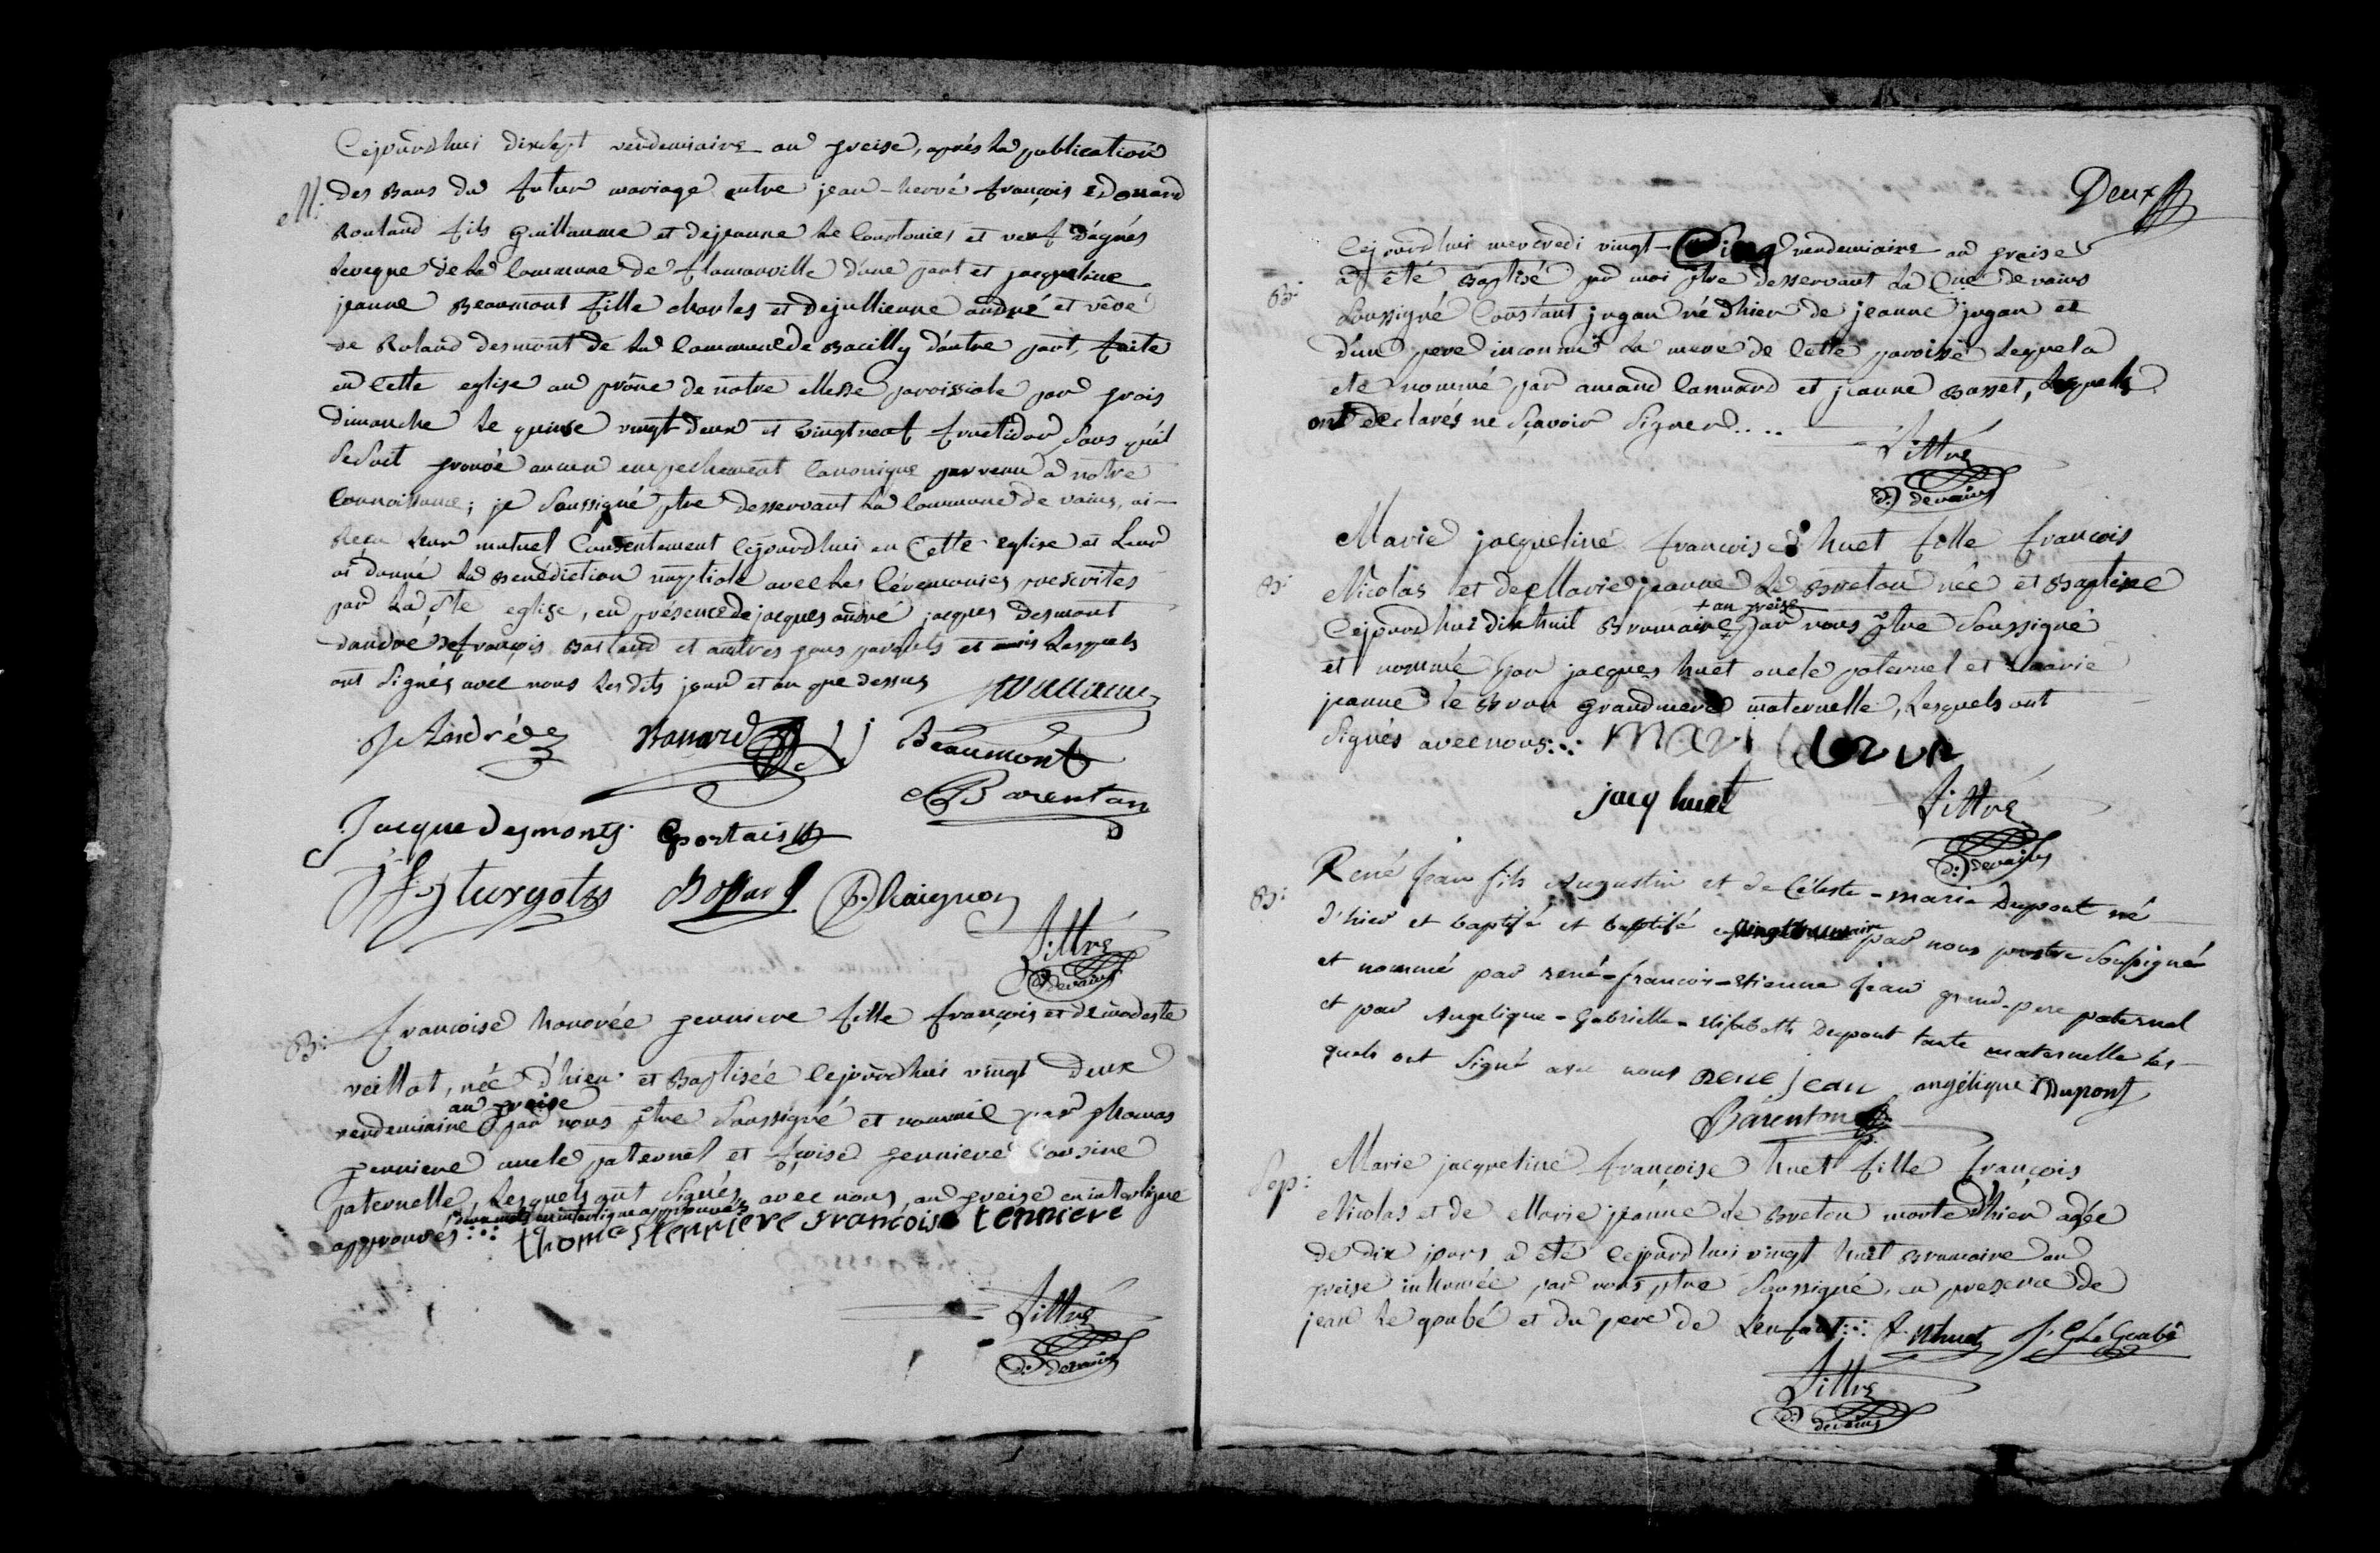 Cejourdhui dixsept vendemiaire an treise, après la publication
M: des Bans du futur mariage entre jean-hervé françois edouard
Rouland fils Guillaume et de jeanne Le Courtouies et veuf d'agnés
Leveque de la Commune de flamanville d'une part et jacqueline
jeanne Beaumont fille charles et de jullienne andrée et veve
de Roland desmont de la Commune de Bacilly d'autre part, faite
en Cette eglise au prône de notre Messe paroissiale par trois
dimanche le quinse vingt deux et vingt neuf fructidor sans qu'il
se soit trouvé aucun empechement Canonique parvenu a notre
Connoissance; je Soussigné ptre desservant la Commune de vains, ai
Recu leur mutuel Consentement Cejourdhui en Cette eglise et Leur
ai donné la Benédiction nuptiale avec les Cérémonies prescrites
par la Ste eglise, en présence de jacques andré jacques desmont
dandre de françois Basland et autres tous parents et amis Lesquels
ont Signés avec nous les dits jour et an que dessus
J Andrée Banard Beaumont
Barentan
Jacque Desmonts Gportais
turgot P. Chaignon
Littré
d: devains
B: françoise honorée tenniere fille françois et de modeste
veillat, née d'hier et Baptisée Cejourdhui vingt deux
an treise
vendemiaire par nous ptre Soussigné et nommée par thomas
tenniere oncle paternel et fçoise tenniere Cousine
paternelle, Lesquels ont Signés avec nous, an treise en interligne
deux mots en interligne approuvés
approuvés::: thomas tenniere françoise tenniere
Littré
d: devains
Deux
Cejourdhui mercredi vingt-Cinq vendemiaire an treise
B: a été Baptisé par moi ptre desservant la Cure de vains
Soussigné Constant jugan né d'hier de jeanne jugan et
d'un pere inconnu la mere de Cette paroisse Lequel a
ete nommé par amand Lannard et jeanne Basset, Lesquels
ont declarés ne sçavoir Signer....
Littré
d: devains
Marie jacqueline françoise huet fille françois
B: Nicolas et de Marie jeanne Le Breton née et Baptisée
+ an treise
Cejourdhui dixhuit Brumaire par nous ptre Soussigné
et nommée par jacques huet oncle paternel et marie
jeanne le Brun grandmere maternelle, Lesquels ont
Signés avec nous::: mari le brun
jacq huet Littré
d: devains
B: René jean fils Augustin et de Céleste-marie Dupont né
d'hier et baptisé et baptisé par nous prestre soussigné
et nommé par rené-francois-etienne jean grand-pere paternel
et par Angelique-Gabrielle-elisabeth Dupont tante maternelle les-
quels ont Signé avec nous Rene jean angélique Dupont
Barenton
Sep: Marie jacqueline françoise huet fille françois
Nicolas et de Marie jeanne le Breton morte d'hier agée
de dix jours a été Cejourdhui vingt huit Brumaire an
treise inhumée par nous ptre Soussigné, en presence de
jean le goubé et du pere de Lenfant::: f. Nhuet J. Le Goubé
Littré
d: devains